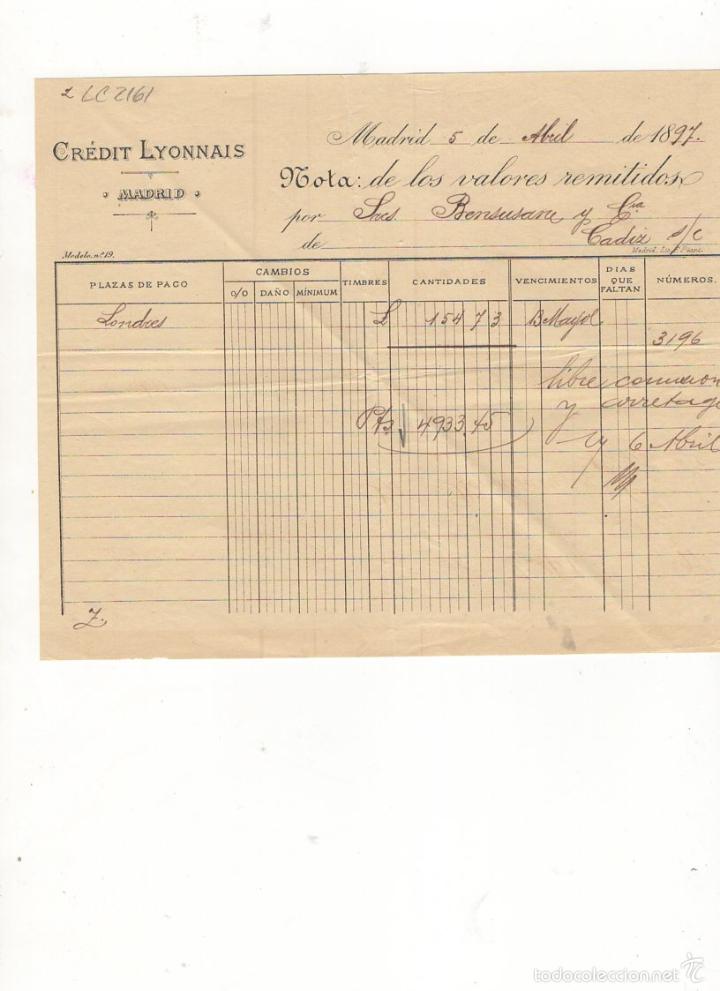 LC 2161
CRÉDIT LYONNAIS
MADRID
Madrid 5 de Abril de 1897.
Nota: de los valores remitidos
por Sres. Bensusan y Cia
de Cadiz s/c
Modelo. nº 19.
PLAZAS DE PAGO
CAMBIOS
O/O DAÑO MÍNIMUM
TIMBRES
CANTIDADES
VENCIMIENTOS
DIAS QUE FALTAN
NÚMEROS.
Londres £ 154 7 3
3196
libre
y corretage
Pts 4933,45
6 Abril
todocoleccion.net